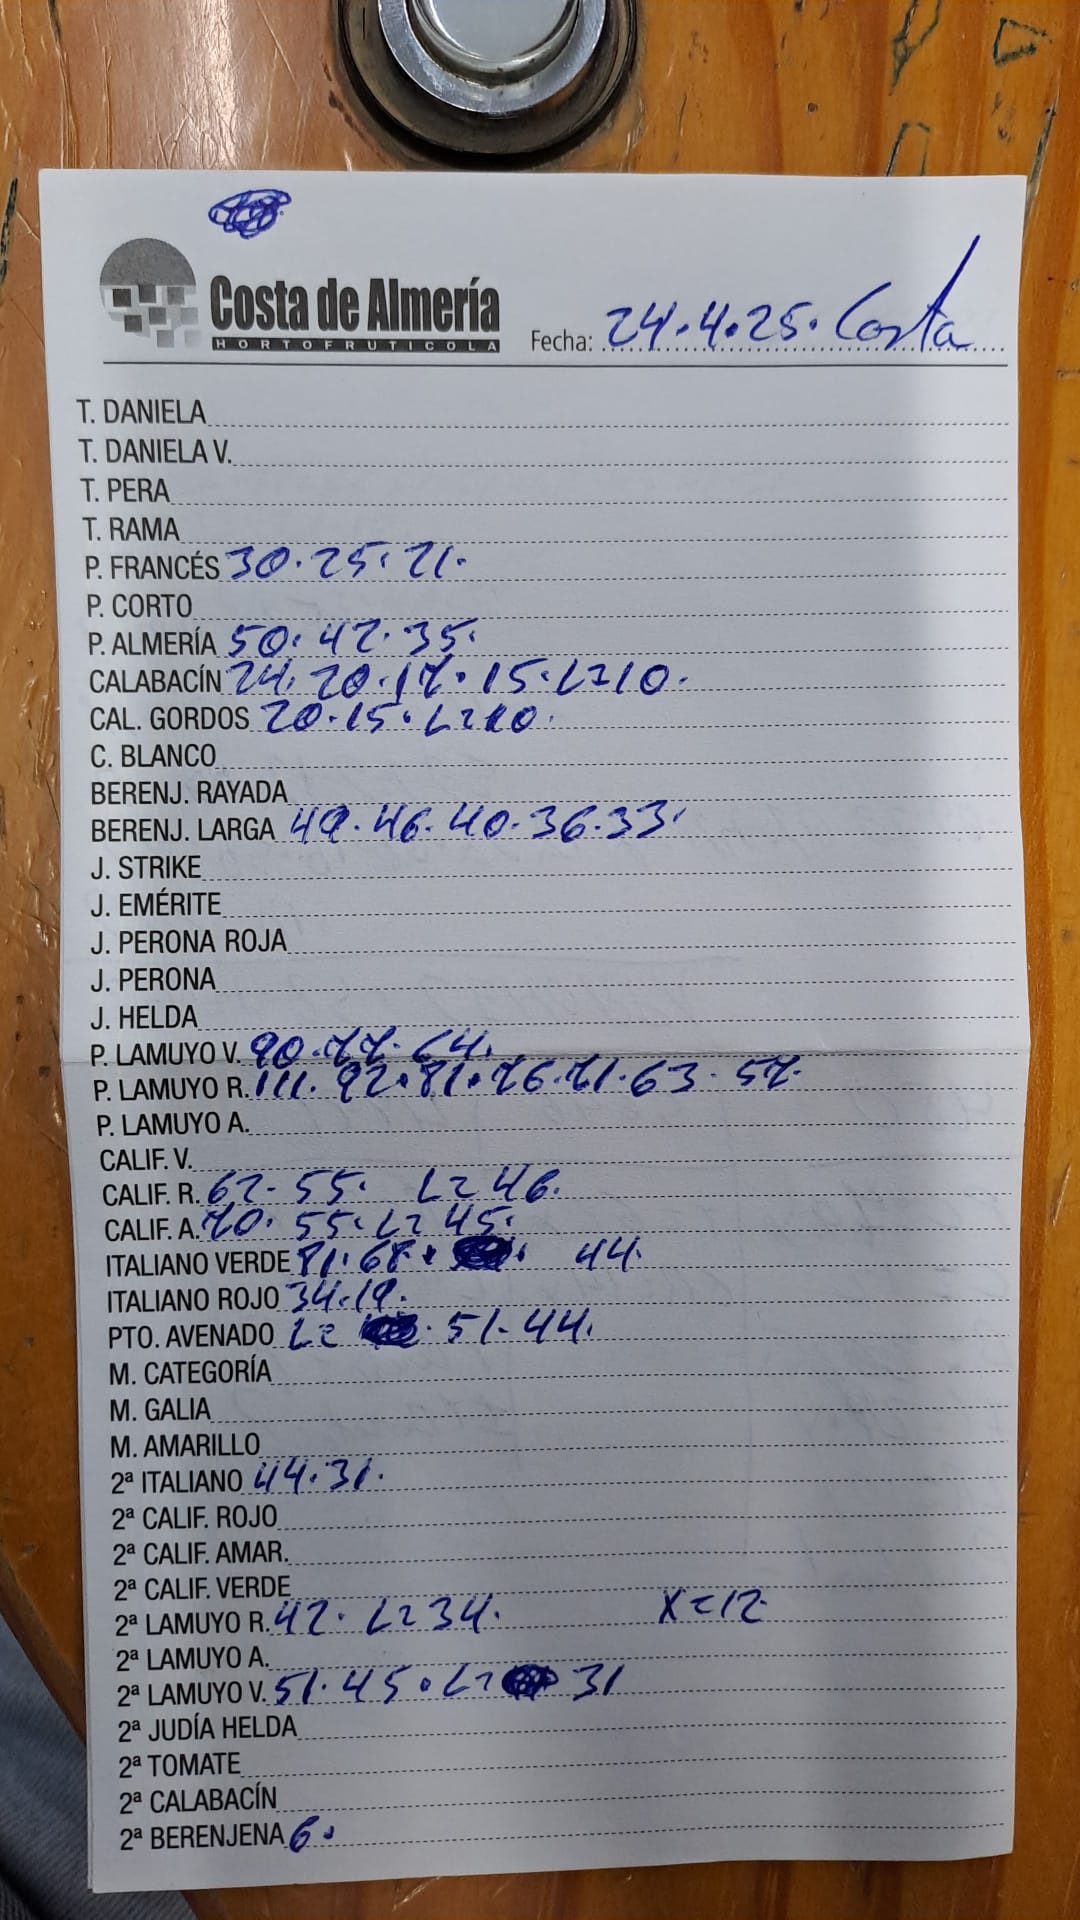 Costa de Almería
HORTOFRUTICOLA
Fecha: 24.4.25. Costa
T. DANIELA
T. DANIELA V.
T. PERA
T. RAMA
P. FRANCÉS 30. 25. 21.
P. CORTO
P. ALMERÍA 50. 42. 35.
CALABACÍN 24. 20. 17. 15. L=10.
CAL. GORDOS 20. 15. L=10.
C. BLANCO
BERENJ. RAYADA
BERENJ. LARGA 49. 46. 40. 36. 33.
J. STRIKE
J. EMÉRITE
J. PERONA ROJA
J. PERONA
J. HELDA
P. LAMUYO V. 90. 77. 64.
P. LAMUYO R. 111. 92. 81. 76. 71. 63. 57.
P. LAMUYO A.
CALIF. V.
CALIF. R. 62. 55. L=46.
CALIF. A. 70. 55. L=45.
ITALIANO VERDE 81. 68. 44.
ITALIANO ROJO 34. 19.
PTO. AVENADO L= 51. 44.
M. CATEGORÍA
M. GALIA
M. AMARILLO
2ª ITALIANO 44. 31.
2ª CALIF. ROJO
2ª CALIF. AMAR.
2ª CALIF. VERDE
2ª LAMUYO R. 42. L=34. X=12
2ª LAMUYO A.
2ª LAMUYO V. 51. 45. L= 31
2ª JUDÍA HELDA
2ª TOMATE
2ª CALABACÍN
2ª BERENJENA 6.